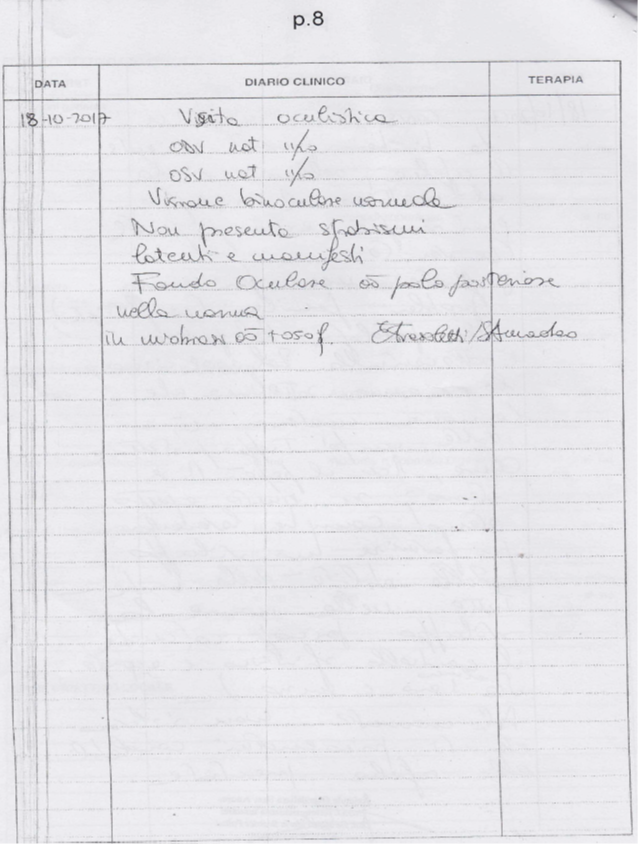 p.8
DATA DIARIO CLINICO TERAPIA
18-10-2017 Visita oculistica
ODV nat 11/10
OSV nat 11/10
Visione binoculare normale
Non presenta strabismi
latenti e manifesti
Fondo Oculare oo polo posteriore
nella norma
in midriasi oo +050f.